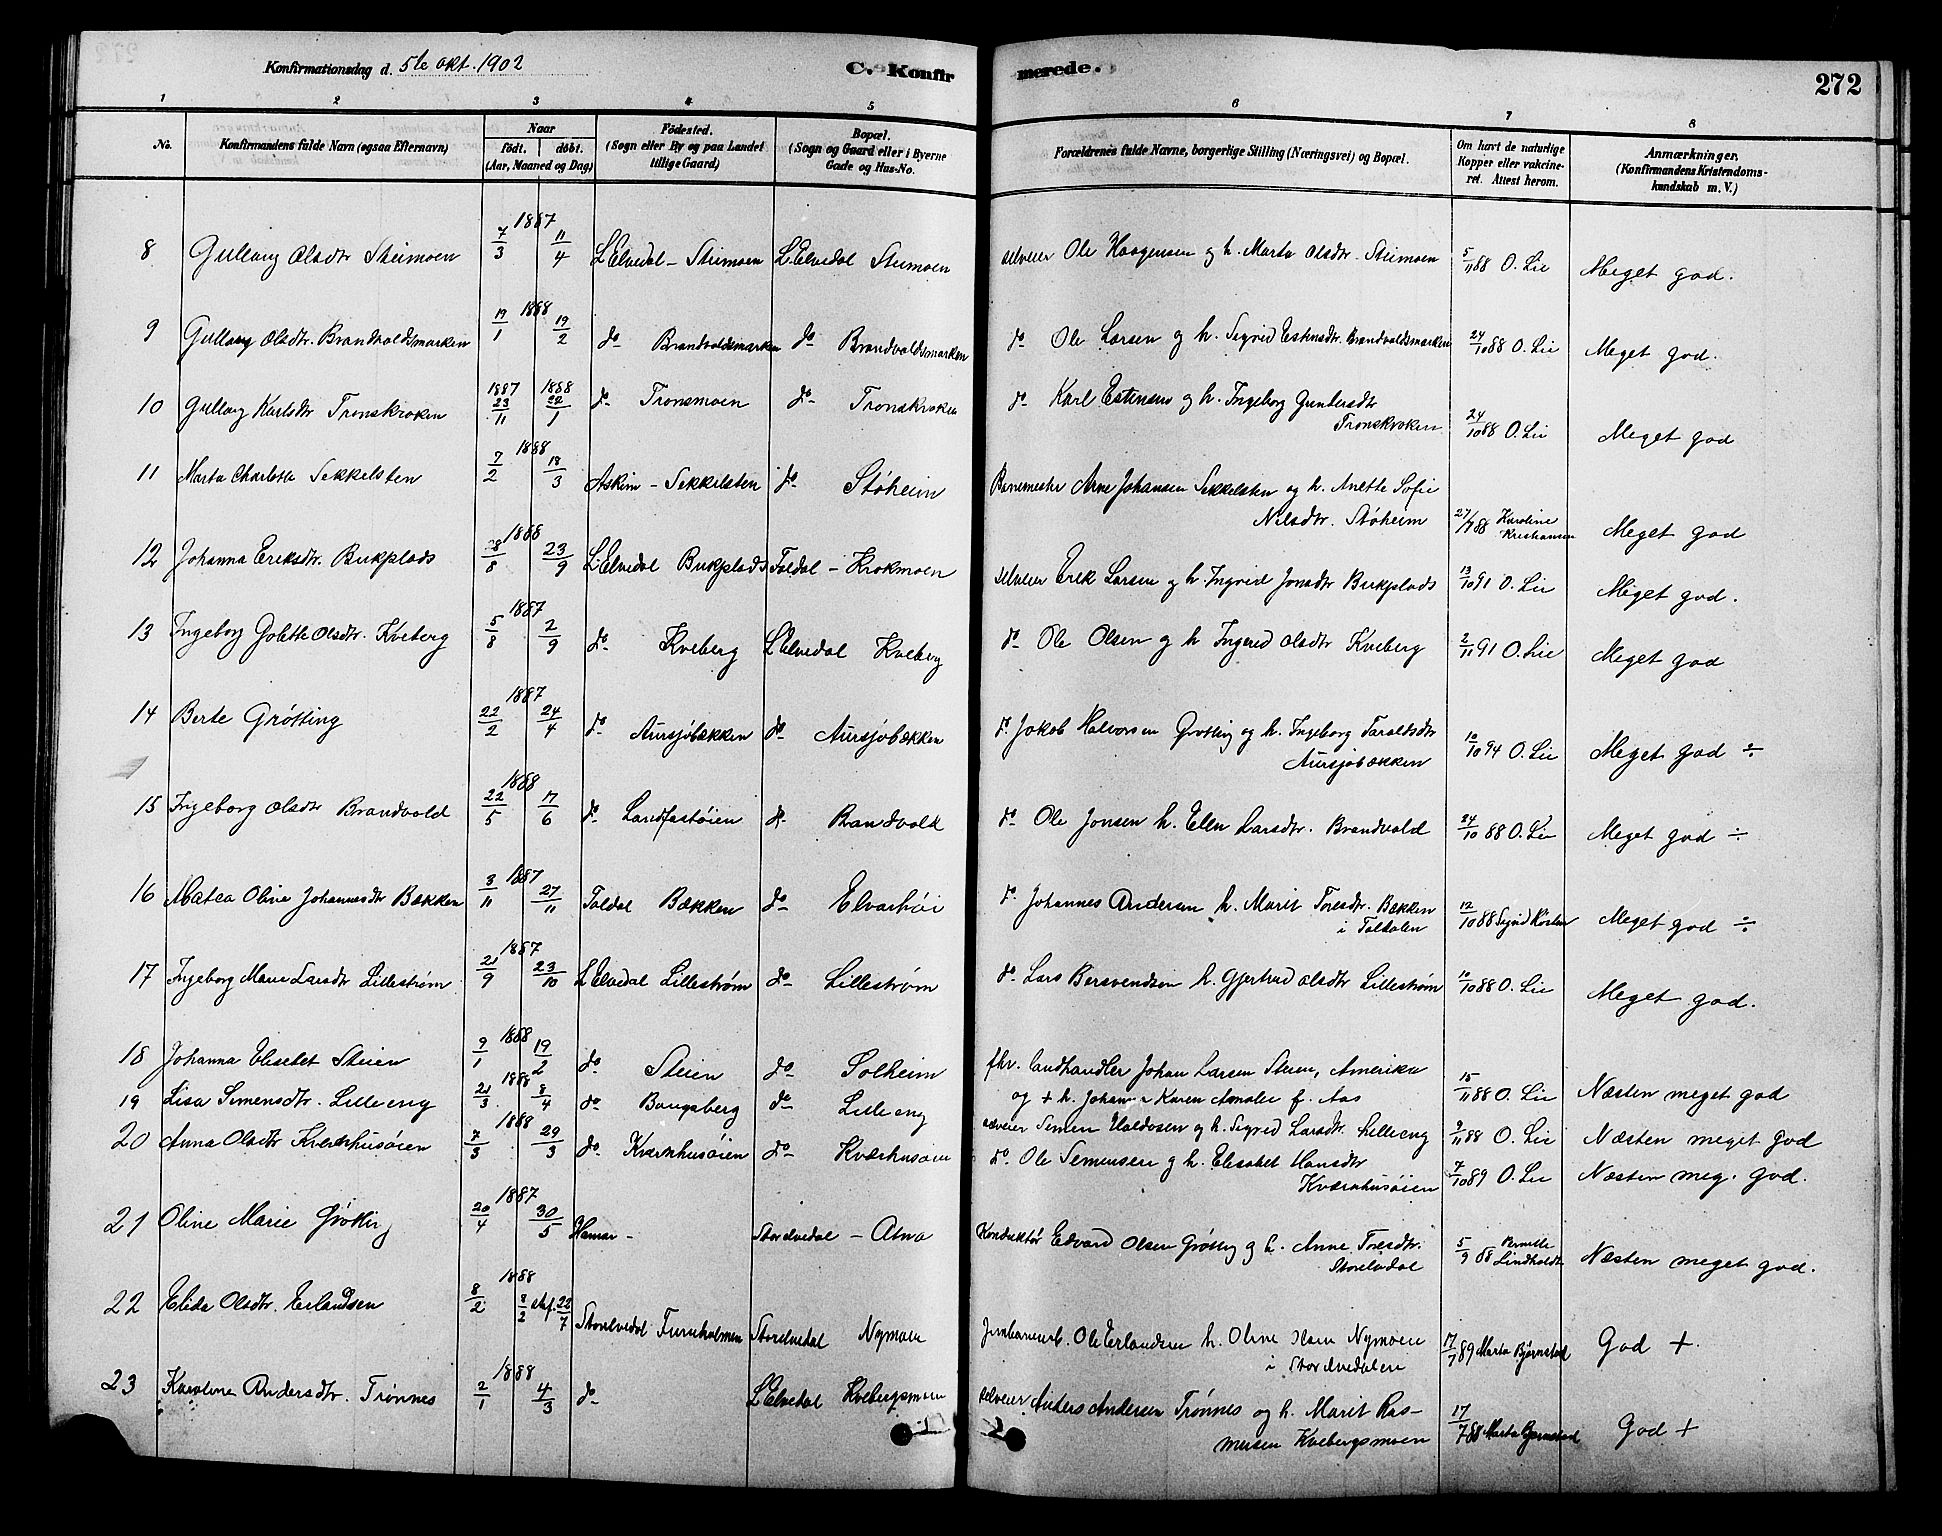 Konfirmationsdag d. 5te okt. 1902 C. Konfirmerede. 272
1 2 3 4 5 6 7 8
No. Konfirmandens fulde Navn (ogsaa Efternavn) Naar født. døbt. (Aar, Maaned og Dag) Fødested. (Sogn eller By og paa Landet tillige Gaard) Bopæl. (Sogn og Gaard eller i Byerne Gade og Hus-No. Forældrenes fulde Navne, borgerlige Stilling (Næringsvei) og Bopæl. Om havt de naturlige Kopper eller vakcineret. Attest herom. Anmærkninger. (Konfirmandens Kristendomskundskab m. V.)
8 Gullaug Olsdtr Steimoen 1887 7/3 11/4 L. Elvedal - Steimoen L. Elvedal Steimoen selveier Ole Haagensen og h. Marta Olsdtr. Steimoen 5/11 88 O. Lie Meget god.
9 Gullaug Olsdtr. Brandvoldsmarken 1888 19/1 19/2 do Brandvoldsmarken do Brandvoldsmarken do Ole Larsen og h. Sigrid Estensdtr. Brandvoldsmarken 24/10 88 O. Lie Meget god.
10 Gullaug Karlsdtr Tronskroken 1887 23/11 1888 22/1 do Tronsmoen do Tronskroken do Karl Estensen og h. Ingeborg Gundersdtr
Tronskroken 24/10 88 O. Lie Meget god
11 Marta Charlotte Sekkelsten 1888 7/2 18/3 Askim - Sekkelsten do Støheim Banemester Arne Johansen Sekkelsten og h. Anette Sofie
Nilsdtr. Støheim 27/7 88 Karoline Kristiansen Meget god
12 Johanna Eriksdtr. Bukplads 1888 28/8 23/9 L. Elvedal Bukplads Foldal - Krokmoen selveier Erik Larsen og h. Ingrid Jonsdtr Bukplads 13/10 91 O. Lie Meget god.
13 Ingeborg Golette Olsdtr. Kveberg 1887 5/8 2/9 do Kveberg L. Elvedal Kveberg do Ole Olsen og h Ingrid Olsdtr Kveberg 2/11 91 O. Lie Meget god
14 Berte Grøtting 1887 22/2 24/4 do Aursjøbækken do Aursjøbækken do Jakob Halvorsen Grøtting og h. Ingeborg Taraldsdtr
Aursjøbækken 10/10 94 O. Lie Meget god ÷
15 Ingeborg Olsdtr Brandvold 1888 22/5 17/6 do Landfastøien do Brandvold do Ole Jonsen h. Ellen Larsdtr. Brandvold 24/10 88 O. Lie Meget god ÷
16 Matea Oline Johannesdtr Bækken 1887 3/11 27/11 Foldal Bækken do Elvarhøi do Johannes Andersen h. Marit Toresdtr. Bækken
i Foldalen 12/10 88 Sigrid Meget god ÷
17 Ingeborg Marie Larsdtr Lillestrøm 1887 21/9 23/10 L. Elvedal Lillestrøm do Lillestrøm do Lars Bersvendsen h. Gjertrud Olsdtr Lillestrøm 10/10 88 O. Lie Meget god.
18 Johanna Elisabet Steien 1888 9/1 19/2 do Steien do Solheim fhv. landhandler Johan Larsen Steien, Amerika
og + h. Johanne Karen Amalie f. Aas 15/11 88 O. Lie Næsten meget god
19 Lisa Simensdtr. Lilleeng 1888 21/3 8/4 do Baugsberg do Lilleeng selveier Simen Haldosen og h. Sigrid Larsdtr. Lilleeng 9/11 88 O. Lie Næsten meget god
20 Anna Olsdtr Kværnhusøien 1888 7/3 29/3 do Kværnhusøien do Kværhusøien do Ole Simensen og h. Elisabet Hansdtr
Kværnhusøien 7/10 89 O. Lie Næsten meg. god.
21 Oline Marie Grøtting 1887 20/4 30/5 Hamar - Storelvedal - Atna Konduktør Edvard Olsen Grøtting og h. Anne Toresdtr.
Storelvdal 5/9 88 Pernille Lindholdt Næsten meget god.
22 Elida Olsdtr. Erlandsen 1888 8/2 8/2 stf. 22/7 Storelvedal Furuholmen Storelvedal Nymoen Jernbanearb. Ole Erlandsen h. Oline Nymoen
i Storelvedalen 17/7 89 Marta Bjørnstad God +
23 Karoline Andersdtr. Trønnes 1888 2/1 4/3 do L. Elvedal Kvebergsmoen selveier Anders Andersen Trønnes og h. Marit Rasmusen Kvebergsmoen 17/7 88 Marta Bjørnstad God +